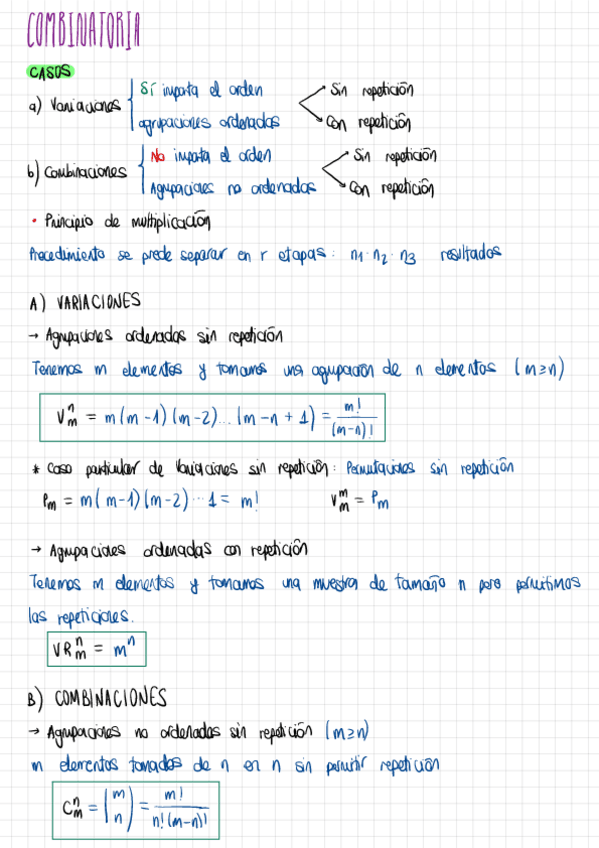 COMBINATORIA
CASOS
a) Variaciones { Sí importa el orden
agrupaciones ordenadas
Sin repetición
Con repetición
b) Combinaciones { No importa el orden
Agrupaciones no ordenadas
Sin repetición
Con repetición
• Principio de multiplicación
Procedimiento se puede separar en r etapas: n1·n2·n3 resultados
A) VARIACIONES
→ Agrupaciones ordenadas sin repetición
Tenemos m elementos y tomamos una agrupación de n elementos (m≥n)
V_m^n = m(m-1)(m-2)...(m-n+1) = m!/(m-n)!
* Caso particular de variaciones sin repetición: Permutaciones sin repetición
P_m = m(m-1)(m-2)···1 = m! V_m^m = P_m
→ Agrupaciones ordenadas con repetición
Tenemos m elementos y tomamos una muestra de tamaño n pero permitimos
las repeticiones.
VR_m^n = m^n
B) COMBINACIONES
→ Agrupaciones no ordenadas sin repetición (m≥n)
m elementos tomados de n en n sin permitir repetición
C_m^n = (m n) = m!/n!(m-n)!